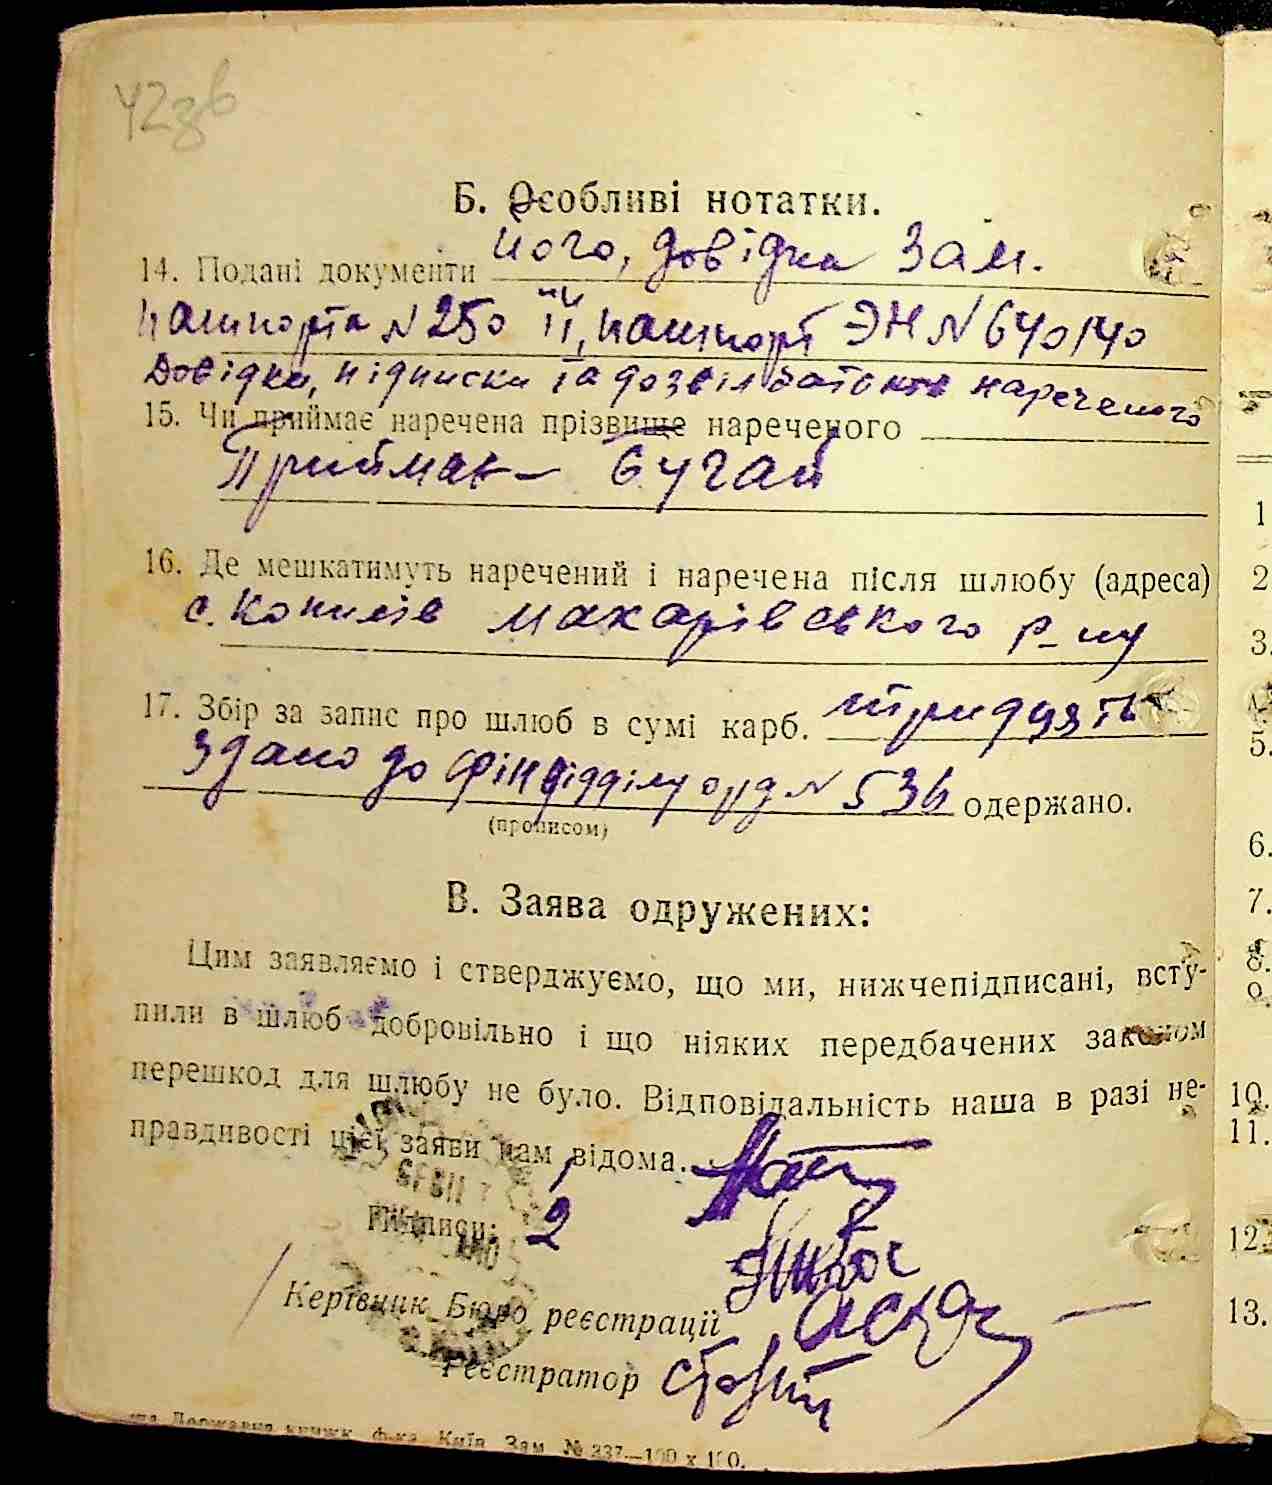 42зв
Б. Особливі нотатки.
14. Подані документи його, довідка зам.
пашпорта № 250 її, пашпорт ЭН № 640140
Довідки, підписки та дозвіл батьків нареченого
15. Чи приймає наречена прізвище нареченого
Приймає – Бугай
16. Де мешкатимуть наречений і наречена після шлюбу (адреса)
с. Копилів Макарівського р-ну
17. Збір за запис про шлюб в сумі карб. тридцять
здано до фінвідділу орд № 536 одержано.
(прописом)
В. Заява одружених:
Цим заявляємо і стверджуємо, що ми, нижчепідписані, всту-
пили в шлюб добровільно і що ніяких передбачених законом
перешкод для шлюбу не було. Відповідальність наша в разі не-
правдивості цієї заяви нам відома.
Підписи: 2
Керівник Бюро реєстрації
Реєстратор
Державна книжк. ф-ка, Київ, Зам. № 337—100 х 100.
1
2
3.
5.
6.
7.
8.
9.
10.
11.
12.
13.